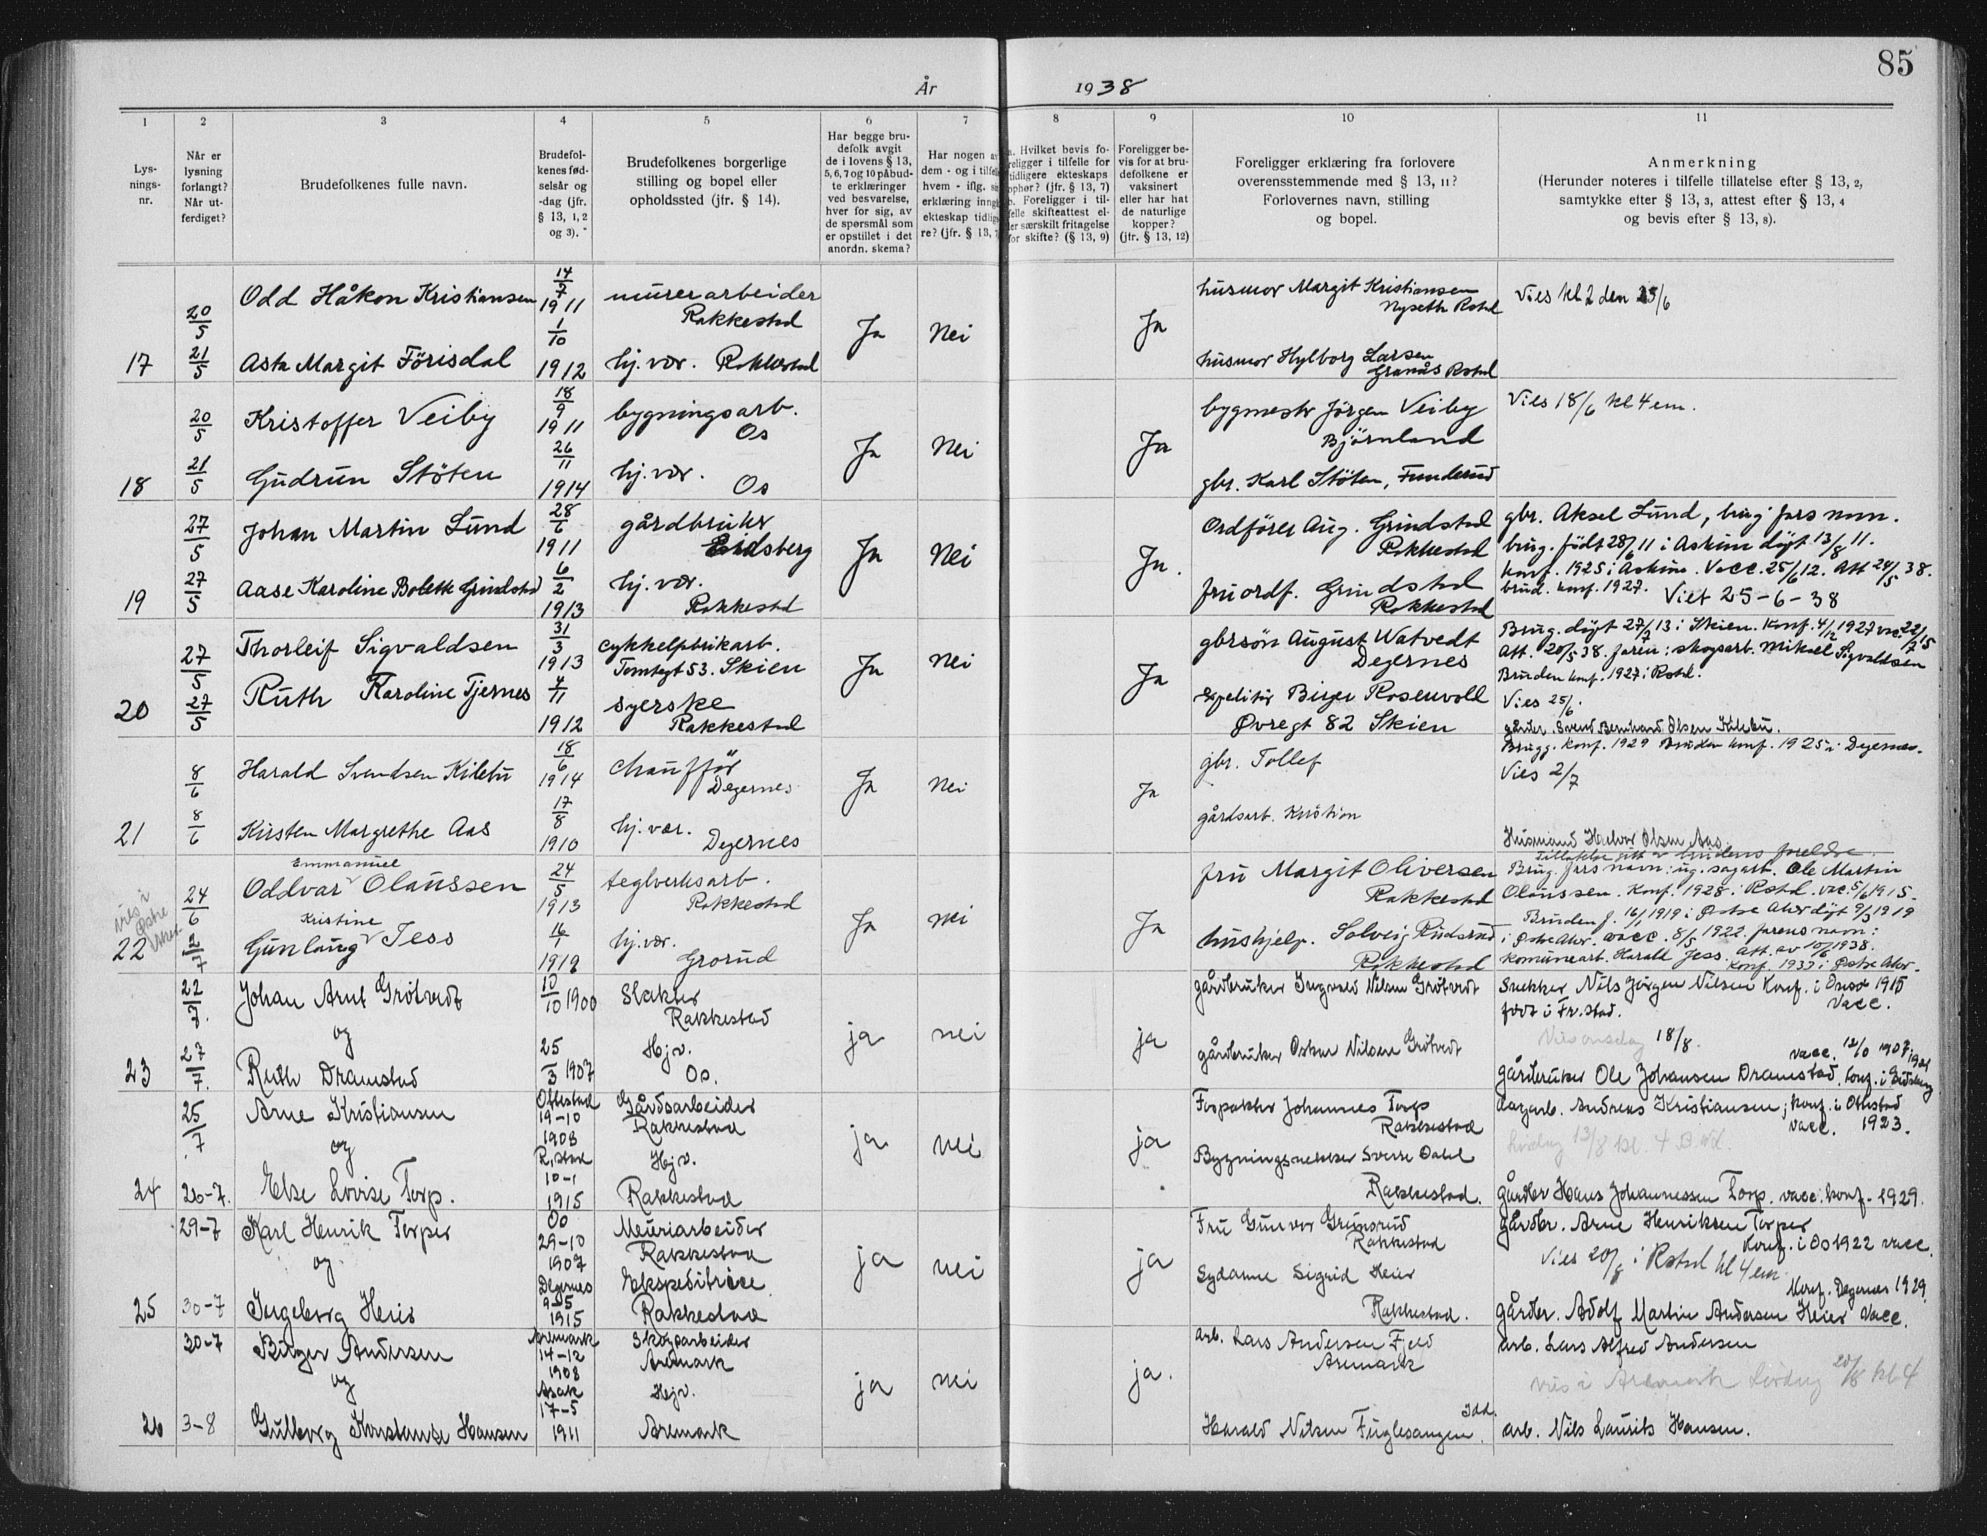 85
År 1938
1 2 3 4 5 6 7 8 9 10 11
Lys-
nings-
nr.
Når er
lysning
forlangt?
Når ut-
ferdiget?
Brudefolkenes fulle navn.
Brudefol-
kenes fød-
selsår og
-dag (jfr.
§ 13, 1, 2
og 3).
Brudefolkenes borgerlige
stilling og bopel eller
opholdssted (jfr. § 14).
Har begge bru-
defolk avgit
de i lovens § 13,
5, 6, 7 og 10 påbud-
te erklæringer
ved besvarelse,
hver for sig, av
de spørsmål som
er opstillet i det
anordn. skema?
Har nogen av
dem - og i tilfelle
hvem - iflg.
erklæring inngå
ekteskap tidlige
re? (jfr. § 13, 7
a. Hvilket bevis fo-
religger i tilfelle for
tidligere ekteskaps
ophør? (jfr. § 13, 7)
b. Foreligger i til-
felle skifteattest el-
ler særskilt fritagelse
for skifte? (§ 13, 9)
Foreligger be-
vis for at bru-
defolkene er
vaksinert
eller har hat
de naturlige
kopper?
(jfr. § 13, 12)
Foreligger erklæring fra forlovere
overensstemmende med § 13, 11?
Forlovernes navn, stilling
og bopel.
Anmerkning
(Herunder noteres i tilfelle tillatelse efter § 13, 2,
samtykke efter § 13, 3, attest efter § 13, 4
og bevis efter § 13, 8).
17
20/5
21/5
Odd Håkon Kristiansen
Asta Margit Förisdal
14/7
1911
1/10
1912
murerarbeider
Rakkestad
hj. vær. Rakkestad
Ja
Nei
Ja
husmor Margit Kristiansen
Nyseth Rstad
husmor Hylborg Larsen
Granås Rstad
Vies kl 2 den 25/6
18
20/5
21/5
Kristoffer Veiby
Gudrun Stöten
18/9
1911
26/11
1914
bygningsarb.
Os
hj. vær.
Os
Ja
Nei
Ja
bygmestr Jörgen Veiby
Björnland
gbr. Karl Stöten, Funderud
Vies 18/6 kl 4 em.
19
27/5
27/5
Johan Martin Lund
Aase Karoline Bolette Grindstad
28/6
1911
6/2
1913
gårdbruker
Eidsberg
hj. vær.
Rakkestad
Ja
Nei
Ja.
Ordförer Aug. Grindstad
Rakkestad
fru ordf. Grindstad
Rakkestad
gbr. Aksel Lund, brug. fars navn.
brug. født 28/6 11 i Askim døpt 13/8 11.
konf. 1925 i Askim. Vacc. 25/6 12. Att 24/5 38.
brud. konf. 1927. Viet 25-6-38
20
27/5
27/5
Thorleif Sigvaldsen
Ruth Karoline Tjernes
31/3
1913
4/11
1912
cykkelfabrikarb.
Tomtegt 53. Skien
syerske
Rakkestad
Ja
Nei
Ja
gbrsøn August Watvedt
Degernes
Birger Rosenvold
Øvregt 82 Skien
Brug. døpt 27/7 13 i Skien. Konf. 4/12 1927 vac. 22/7 15
Att. 20/5 38. faren: skogsarb. Mikael Sigvaldsen
Bruden konf. 1927 i Rstd.
Vies 25/6.
21
8/6
8/6
Harald Svendsen Kilebu
Kirsten Margrethe Aas
18/6
1914
17/8
1910
chauffør
Degernes
hj. vær.
Degernes
Ja
Nei
Ja
gbr. Tollef
gårdsarb. Kristian
gårdbr. Svend Bernhard Olsen Kilebu.
Brugg. konf. 1929 Bruden konf. 1925 i Degernes.
Vies 2/7
Husmand Halvor Olsen Aas
22
vies i
Østre
24/6
2/7
Emmanuel
Oddvar Olaussen
Kristine
Gunlaug Jess
24/5
1913
16/1
1919
teglverksarb.
Rakkestad
hj. vær.
Grorud
Ja
Nei
Ja
fru Margit Oliversen
Rakkestad
hushjelp. Solveig Rudsrud
Rakkestad
Tillatelse gitt av brudens foreldre.
Brug. fars navn: ug. sagarb. Ole Martin
Olaussen. Konf. 1928 i Rstad. vac. 5/6 1915.
Bruden f. 16/1 1919 i Østre Aker døpt 9/3 1919
i Østre Aker. vacc. 8/5 1922. farens navn:
Komunearb. Harald Jess. Att. av 10/6 1938.
Konf. 1933 i Østre Aker.
23
22/7.
27/7.
Johan Arnt Grötvedt
og
Ruth Dramstad
10/10 1900
25/3 1907
Slakter
Rakkestad
Hjv.
Os.
ja
nei
ja
gårdbruker Ingvald Nilsen Grötvedt
gårdbruker Oskar Nilsen Grötvedt
Snekker Nils Jörgen Nilsen Konf. i Onsø 1915
født i Fr.stad. Vacc.
Vies onsdag 18/8.
vacc. 12/6 1907
gårdbruker Ole Johansen Dramstad, konf. i Eidsberg 1921
24
25/7
26-7.
Arne Kristiansen
og
Else Lovise Torp.
Ottestad
19-10
1908
R.stad
10-1
1915
Gårdsarbeider
Rakkestad
Hjv.
Rakkestad
ja
nei
ja
Forpakter Johannes Torp
Rakkestad
Bygningssnekker Sverre Dahl
Rakkestad.
dagarb. Andreas Kristiansen; konf. i Ottestad
vacc. 1923.
lørdag 13/8 kl. 4
gårdbr Hans Johannessen Torp. vacc. konf. 1929.
25
29-7
30-7
Karl Henrik Torper
og
Ingeborg Heier
Os
29-10
1907
Degernes
9-5
1915
Meieriarbeider
Rakkestad
Ekspeditrice
Rakkestad
ja
nei
ja
Fru Gunvor Grimsrud
Rakkestad
Sydame Sigrid Heier
Rakkestad.
gårdbr. Arne Henriksen Torper
Konf. i Os 1922 vacc.
Vies 20/8 i Rstad kl 4 em
Konf. Degernes 1929.
gårdbr. Adolf Martin Andersen Heier Vacc.
26
30-7
3-8
Birger Andersen
og
Gulborg Konstanse Hansen
Aremark
14-12
1908
Asak
17-5
1911
Skogsarbeider
Aremark
Hjv.
Aremark
ja
nei
ja.
Arb. Lars Andersen Fjeld
Aremark
Idd.
Harald Nilsen Fuglesangen.
Arb. Lars Alfred Andersen
vies i Aremark lørdag 20/8 kl 4
Arb. Nils Laurits Hansen.